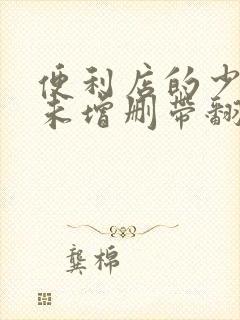 便利店的少
未增删带翻
龚棉